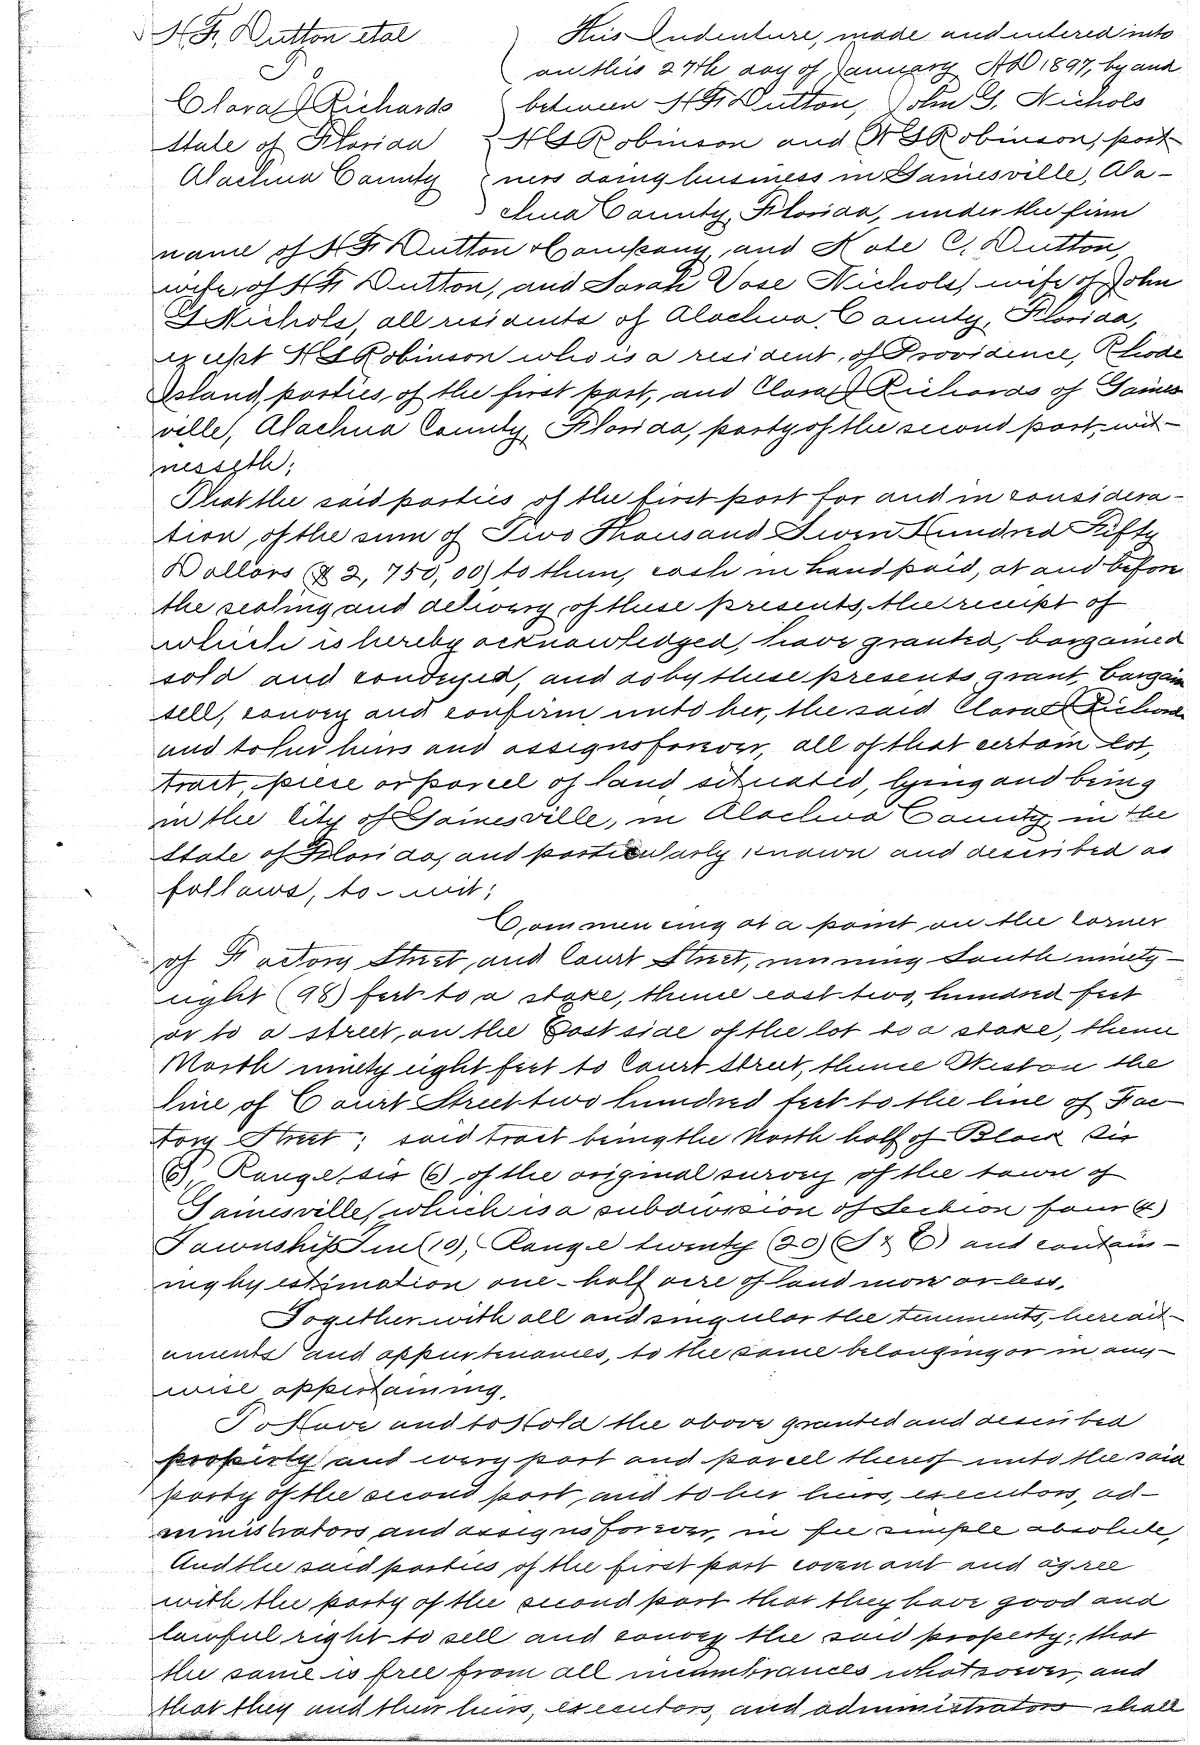 H.F. Dutton etal
To
Clara J Richards
State of Florida
Alachua County
This Indenture, made and entered into
on this 27th day of January AD 1897, by and
between H F Dutton, John G. Nichols
H G Robinson and W G Robinson, part-
ners doing business in Gainesville, Ala-
chua County, Florida, under the firm
name of H F Dutton & Company, and Kate C. Dutton,
wife of H F Dutton, and Sarah Vose Nichols, wife of John
G Nichols, all residents of Alachua County, Florida,
except H G Robinson who is a resident of Providence, Rhode
Island, parties of the first part, and Clara J Richards of Gaines
ville, Alachua County, Florida, party of the second part, wit-
nesseth;
That the said parties of the first part for and in considera-
tion of the sum of Two Thousand Seven Hundred Fifty
Dollars ($2,750,00) to them, cash in hand paid, at and before
the sealing and delivery of these presents, the receipt of
which is hereby acknowledged, have granted, bargained
sold and conveyed, and do by these presents grant, bargain
sell, convey and confirm unto her, the said Clara J Richards
and to her heirs and assigns forever, all of that certain lot,
tract, piece or parcel of land situated, lying and being
in the City of Gainesville, in Alachua County, in the
State of Florida, and particularly known and described as
follows, to-wit;
Commencing at a point on the corner
of Factory Street and Court Street, running South ninety-
eight (98) feet to a stake, thence east two hundred feet
or to a street, on the East side of the lot to a stake, thence
North ninety eight feet to Court Street, thence West on the
line of Court Street two hundred feet to the line of Fac-
tory Street; said tract being the North half of Block Six
(6), Range six (6) of the original survey of the town of
Gainesville, which is a subdivision of Section four (4)
Township Ten (10), Range twenty (20) (S & E) and contain-
ing by estimation one-half acre of land more or less.
Together with all and singular the tenements, heredit-
aments and appurtenances, to the same belonging or in any-
wise appertaining.
To Have and to Hold the above granted and described
property and every part and parcel thereof unto the said
party of the second part, and to her heirs, executors, ad-
ministrators and assigns forever, in fee simple absolute,
And the said parties of the first part covenant and agree
with the party of the second part that they have good and
lawful right to sell and convey the said property; that
the same is free from all incumbrances whatsoever, and
that they and their heirs, executors, and administrators shall